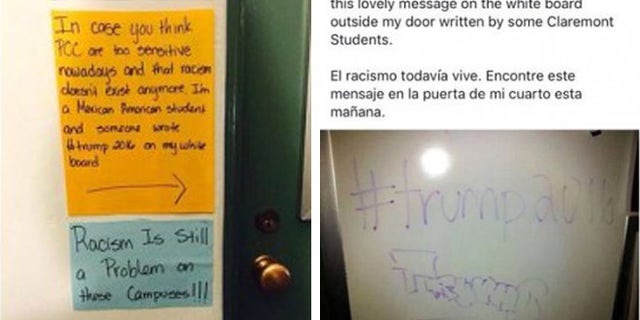 In case you think
POC are too sensitive
nowadays and that racism
doesn't exist anymore. I'm
a Mexican American student
and someone wrote
#trump 2016 on my white
board
Racism Is Still
a Problem on
these Campuses!!!
this lovely message on the white board
outside my door written by some Claremont
Students.
El racismo todavía vive. Encontre este
mensaje en la puerta de mi cuarto esta
mañana.
#trump2016